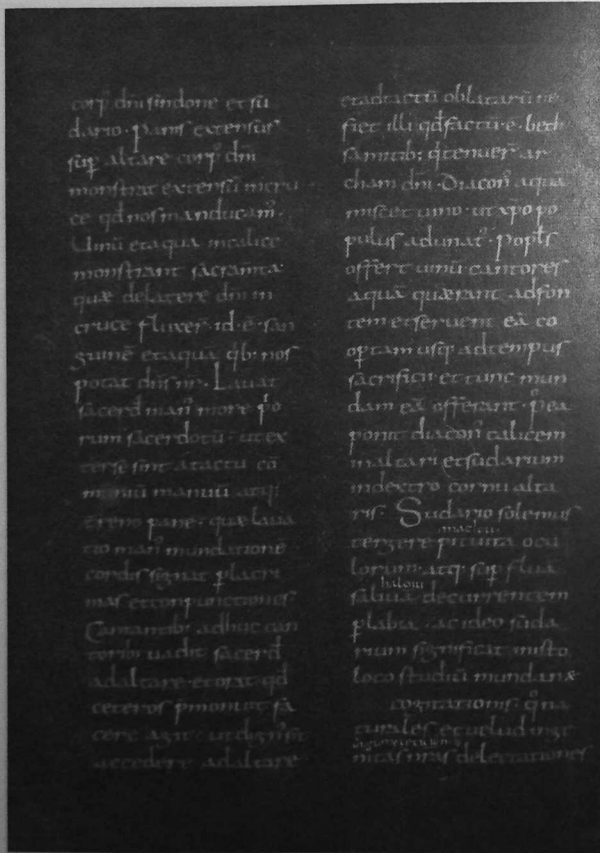 corp̄ dn̄i sindone et su
dario. Panis extensus
sup̄ altare corp̄ dn̄i
monstrat extensū in cru
ce qd̄ nos manducam̄.
Uinū et aqua in calice
monstrant sacram̄ta
quæ de latere dn̄i in
cruce fluxer̄. id. ē. san
guinē et aquā q̄b; nos
potat dn̄s nr̄. Lauat
sacerd̄ man᷒ more p̄o
rum sacerdotū. ut ex
terse sint a tactu cō
muniū manuū atq;
treno pane. quæ laua
tio man᷒ mundationē
cordis signat p̄ lacri
mas et conpunctiones.
Cantantib; adhuc can
torib; uadit sacerd̄
ad altare. et orat qd̄
ceteros p̄monuit fa
cere agit. ut dign᷒ sit
accedere ad altare
et ad tactū oblatarū ne
fiet illi qd̄ factū. ē. beth
samitib; q̄ tenuer̄ ar
cham dn̄i. Diacon᷒ aquā
miscet uino. ut xp̄o po
pulus adunat᷒. Popl̄s
offert uinū. cantores
aquā. quærant ad fon
tem et seruent eā co
optam usq; ad tempus
sacrificii. et tunc mun
dam eā offerant. P᷒ea
ponit diacon᷒ calicem
in altari. et sudarium
in dextro cornu alta
ris. Sudario solemus
tergere pituita ocu
lorum. atq; sup̄fluā
saliuā decurrentem
p̄ labia. ac ideo suda
rium significat in isto
loco studiū mundanæ
cogitationis. q᷒ na
turales et uelud ingt
nitas nr̄as delectationes